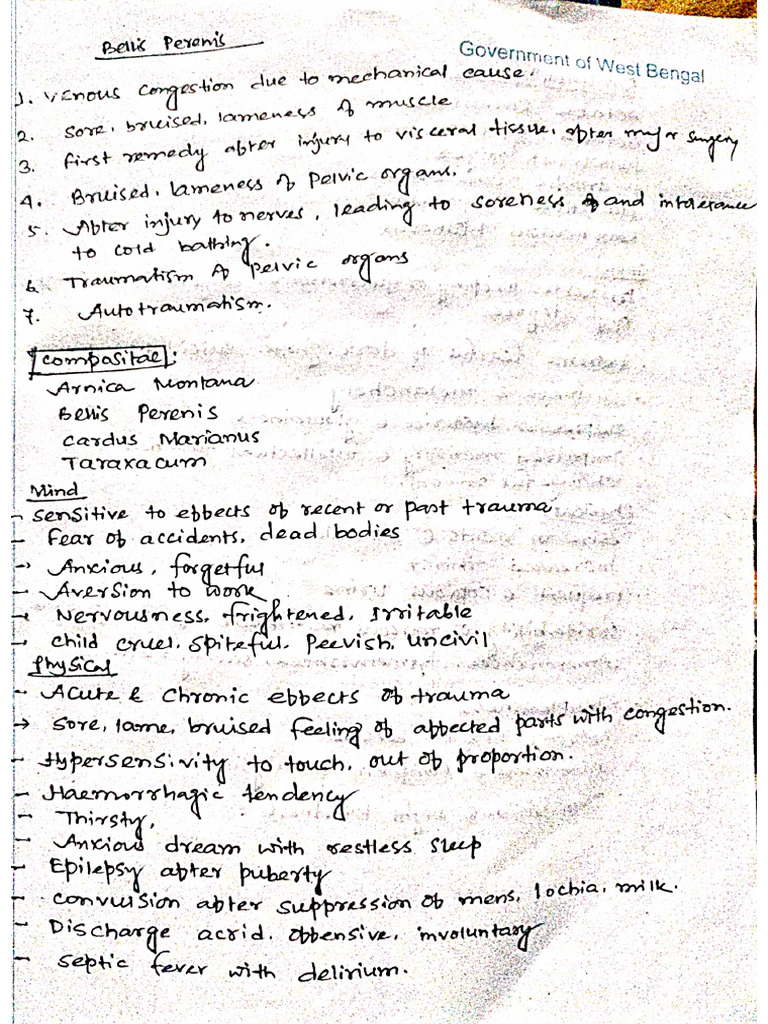 Bellis Perenis
Government of West Bengal
1. Venous congestion due to mechanical cause.
2. Sore, bruised, lameness of muscle
3. First remedy after injury to visceral tissue, after major surgery
4. Bruised, lameness of Pelvic organs.
5. After injury to nerves, leading to soreness and intolerance
to cold bathing.
6. Traumatism of Pelvic organs
7. Autotraumatism.
Compasitae:
Arnica Montana
Bellis Perenis
Cardus Marianus
Taraxacum
Mind
- Sensitive to effects of recent or past trauma
- Fear of accidents, dead bodies
→ Anxious, forgetful
- Aversion to work
→ Nervousness, frightened, Irritable
→ Child cruel, spiteful, Peevish, uncivil
Physical
- Acute & Chronic effects of trauma
→ Sore, lame, bruised feeling of affected parts with congestion.
- Hypersensivity to touch, out of proportion.
- Haemorrhagic tendency
- Thirsty,
- Anxious dream with restless sleep
- Epilepsy after puberty
- Convulsion after suppression of mens, lochia, milk.
- Discharge acrid, offensive, involuntary
- Septic fever with delirium.